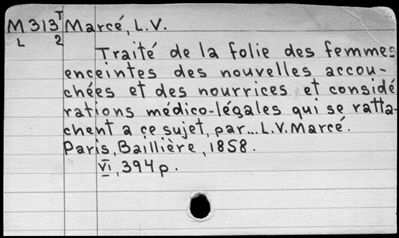 M 313 T Marcé, L.V.
L 2
Traité de la folie des femmes
enceintes des nouvelles accou-
chées et des nourrices et considé
rations médico-légales qui se ratta-
chent a ce sujet, par... L.V. Marcé.
Paris, Baillière, 1858.
VI, 394 p.